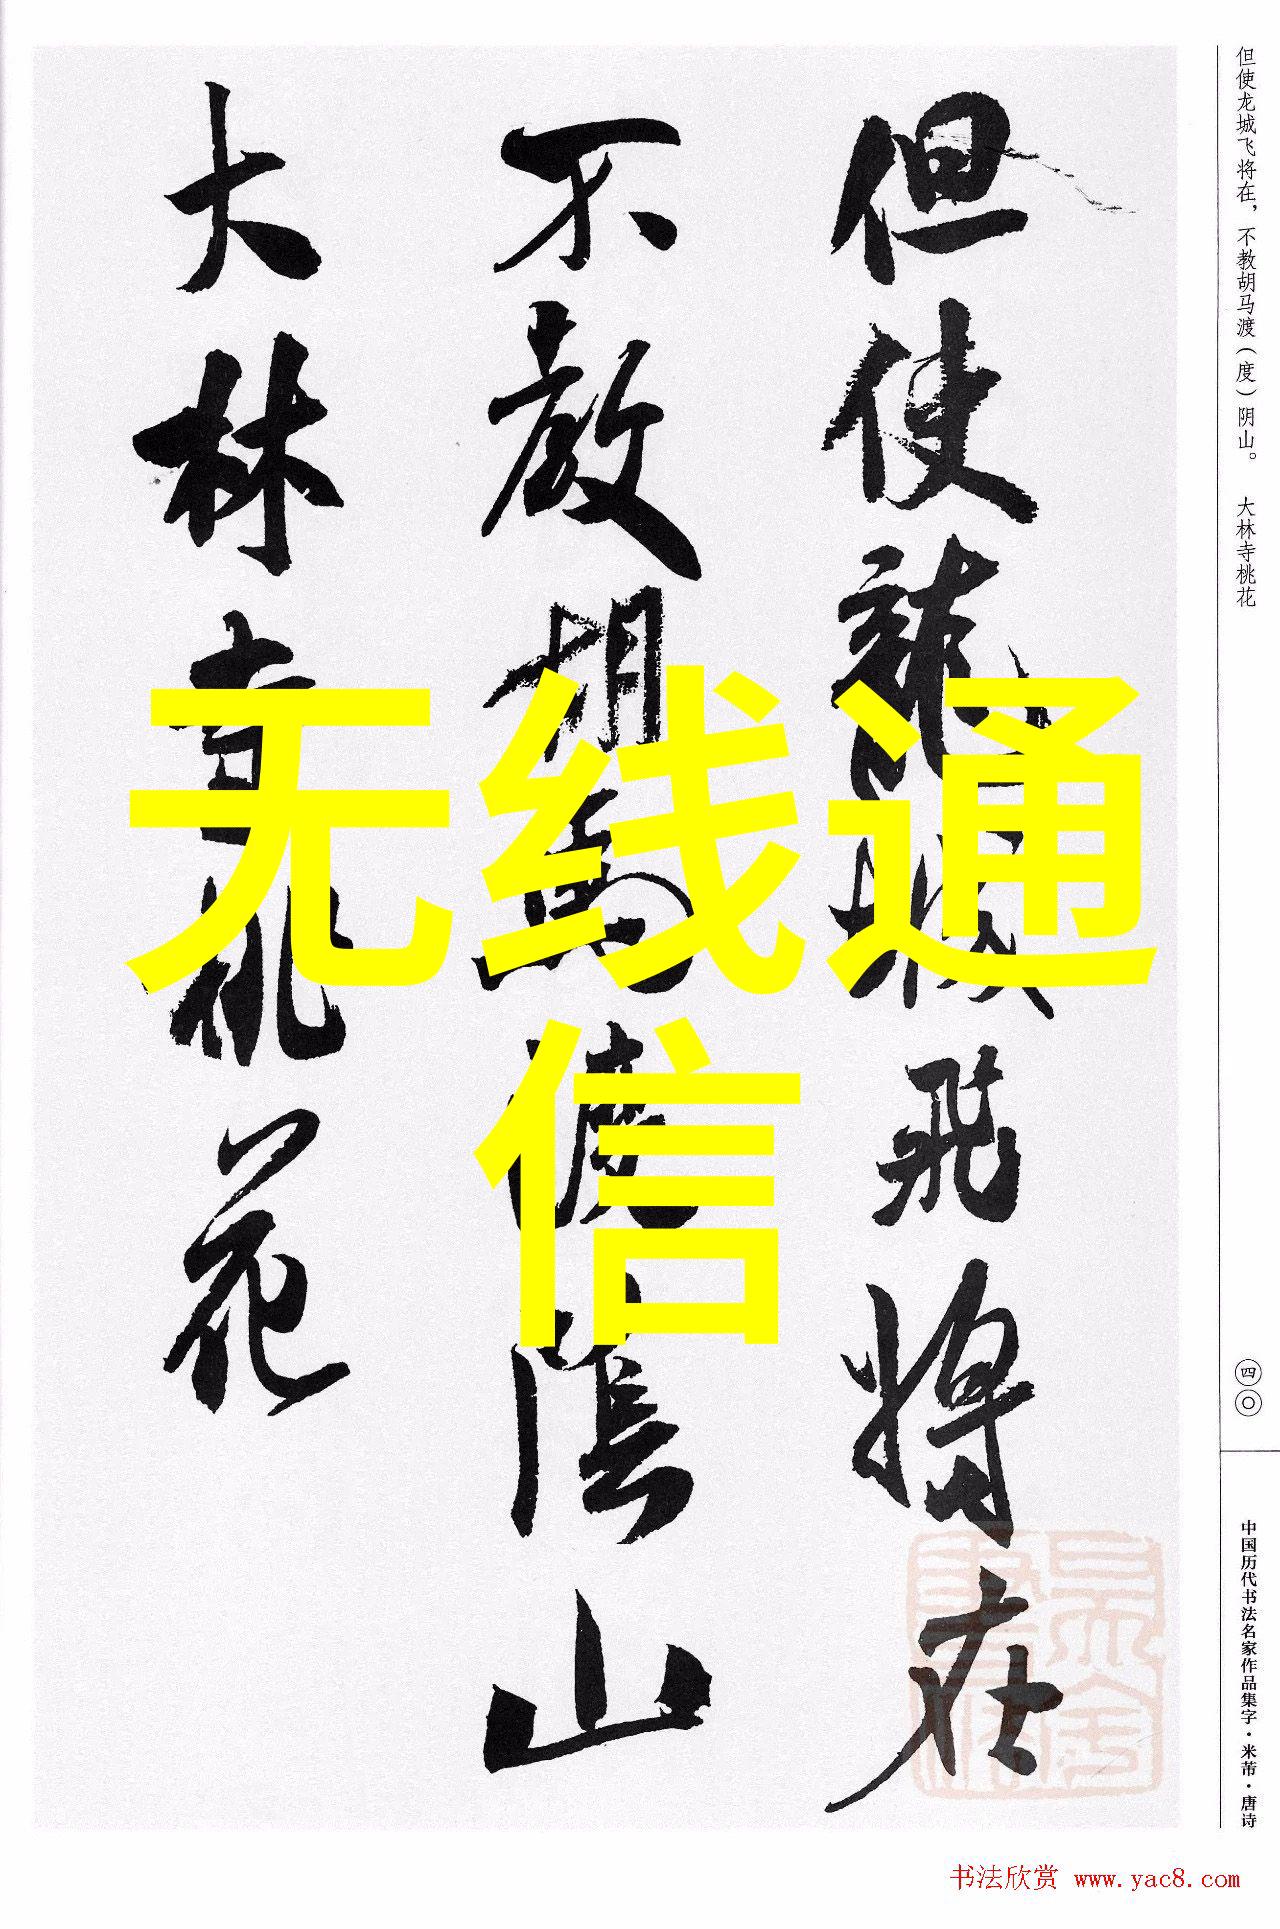 但使龍城飛將在
不教胡馬渡陰山
大林寺桃花
无线通
信
但使龙城飞将在，不教胡马渡（度）阴山。 大林寺桃花
四〇
中国历代书法名家作品集字·米芾·唐诗
书法欣赏 www.yac8.com